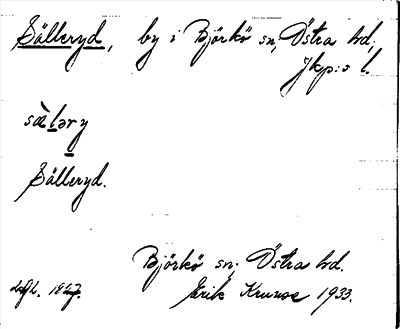 Sälleryd, by i Björkö sn, Östra hd,
Jkp:s l.
sæ̀ləry
Sälleryd.
Björkö sn; Östra hd.
Erik Kruuse 1933.